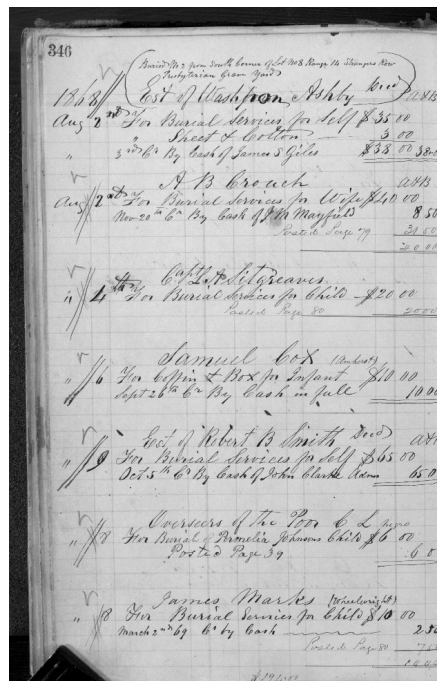 346
Buried No 2 from South Corner of Lot No 8 Range 14 Strangers Row
Presbyterian Grave Yard
1868 Est of Washton Ashby Decd A&B
Aug 2nd For Burial Services for Self $35 00
" Sheet & Cotton 3 00
" 3rd Cr By Cash of James S Giles $38 00 38 00
A B Crouch A&B
Aug 2nd For Burial Services for Wife $40 00
Nov 20th Cr By Cash of J M Mayfield 8 50
Posted Page 79 31 50
40 00
Capt L A Sitgreaves
" 4th For Burial Services for Child $20 00
Posted Page 80 20 00
Samuel Cox (Amherst)
" 6 For Coffin & Box for Infant $10 00
Sept 26th Cr By Cash in full 10 00
Est of Robert B Smith Decd A&B
" 9 For Burial Services for Self $65 00
Oct 5th Cr By Cash of John Clarke Admr 65 0
Overseers of the Poor C L negro
" 8 For Burial of Permelia Johnsons Child $6 00
Posted Page 39 6 0
James Marks (Wheelwright)
" 8 For Burial Services for Child $10 00
March 2nd 69 Cr by Cash 2 50
Posted Page 80 7
10 00